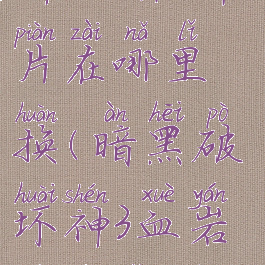 piàn zài nǎ lǐ
片在哪里
huàn àn hēi pò
换(暗黑破
huài shén xuè yán
坏神3血岩